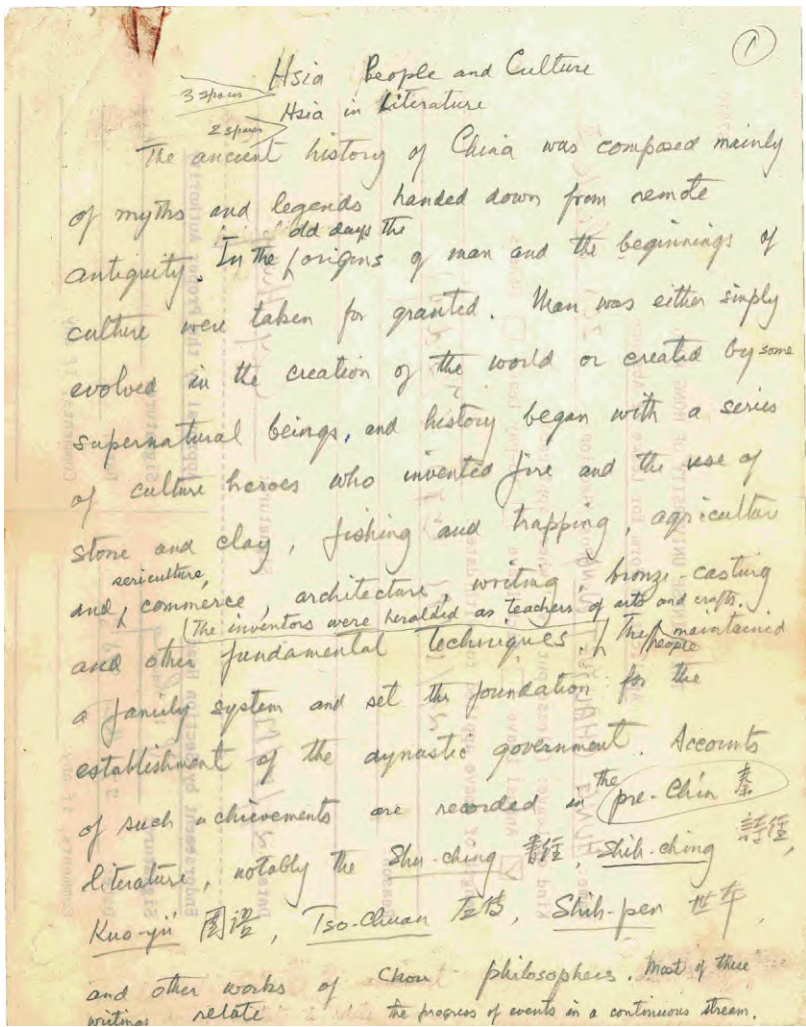 1
Hsia People and Culture
3 spaces
Hsia in Literature
2 spaces
The ancient history of China was composed mainly
of myths and legends handed down from remote
old days the
antiquity. In the origins of man and the beginnings of
culture were taken for granted. Man was either simply
evolved in the creation of the world or created by some
supernatural beings, and history began with a series
of culture heroes who invented fire and the use of
stone and clay, fishing and trapping, agricultur
sericulture,
and commerce, architecture, writing, bronze-casting
(The inventors were heralded as teachers of arts and crafts.
and other fundamental techniques. The people maintained
a family system and set the foundation for the
establishment of the dynastic government. Accounts
of such achievements are recorded in the pre-Chin 秦
literature, notably the Shu-ching 書經, Shih-ching 詩經,
Kuo-yü 國語, Tso-Chuan 左傳, Shih-pen 世本,
and other works of Chou philosophers. Most of these
writings relate the progress of events in a continuous stream.